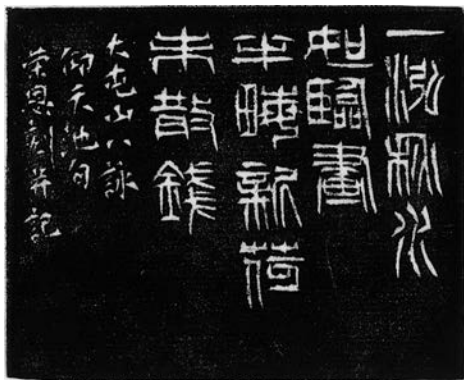 一泓秋水
如臨畫
半畮新荷
未散錢
大屯山八詠
仰天池句
榮恩刻并記